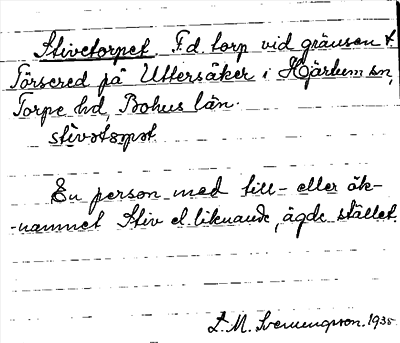 Stivetorpet. F.d. torp vid gränsen t.
Törsered på Uttersäker i Hjärtum sn,
Torpe hd, Bohus län.
En person med till- eller ök-
-namnet Stiv el. liknande, ägde stället.
L. M. Svenungsson. 1935